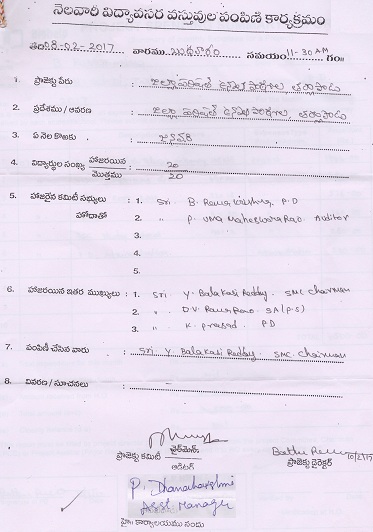 నెలవారీ విద్యావసర వస్తువుల పంపిణి కార్యక్రమం
తేది: 8-02-2017 వారము బుధవారం సమయం 11-30 AM గం॥
1. ప్రాజెక్టు పేరు : జిల్లా పరిషత్ ఉన్నత పాఠశాల
2. ప్రదేశము / ఆవరణ : జిల్లా పరిషత్ ఉన్నత పాఠశాల
3. ఏ నెల కొరకు : జనవరి
4. విద్యార్థుల సంఖ్య హాజరయిన : 20
మొత్తము 20
5. హాజరైన కమిటీ సభ్యులు : 1. Sri B. Rama Krishna P.D
హోదాతో 2. " P. UMA Maheswara Rao. Auditor
3.
4.
5.
6. హాజరయిన ఇతర ముఖ్యులు : 1. Sri Y. Balakasi Reddy. SMC Chairman
2. " D.V. Rama Rao. SA (P.S)
3. " K. Prasad. P.D
7. పంపిణీ చేసిన వారు : Sri Y Balakasi Reddy. SMC. Chairman
8. వివరణ / సూచనలు : -
ప్రాజెక్టు కమిటీ చైర్‌మెన్.
ఆడిటర్
ప్రాజెక్టు డైరెక్టర్
P. Dhanalakshmi
Asst Manager
హై॥ కార్యాలయము నందు